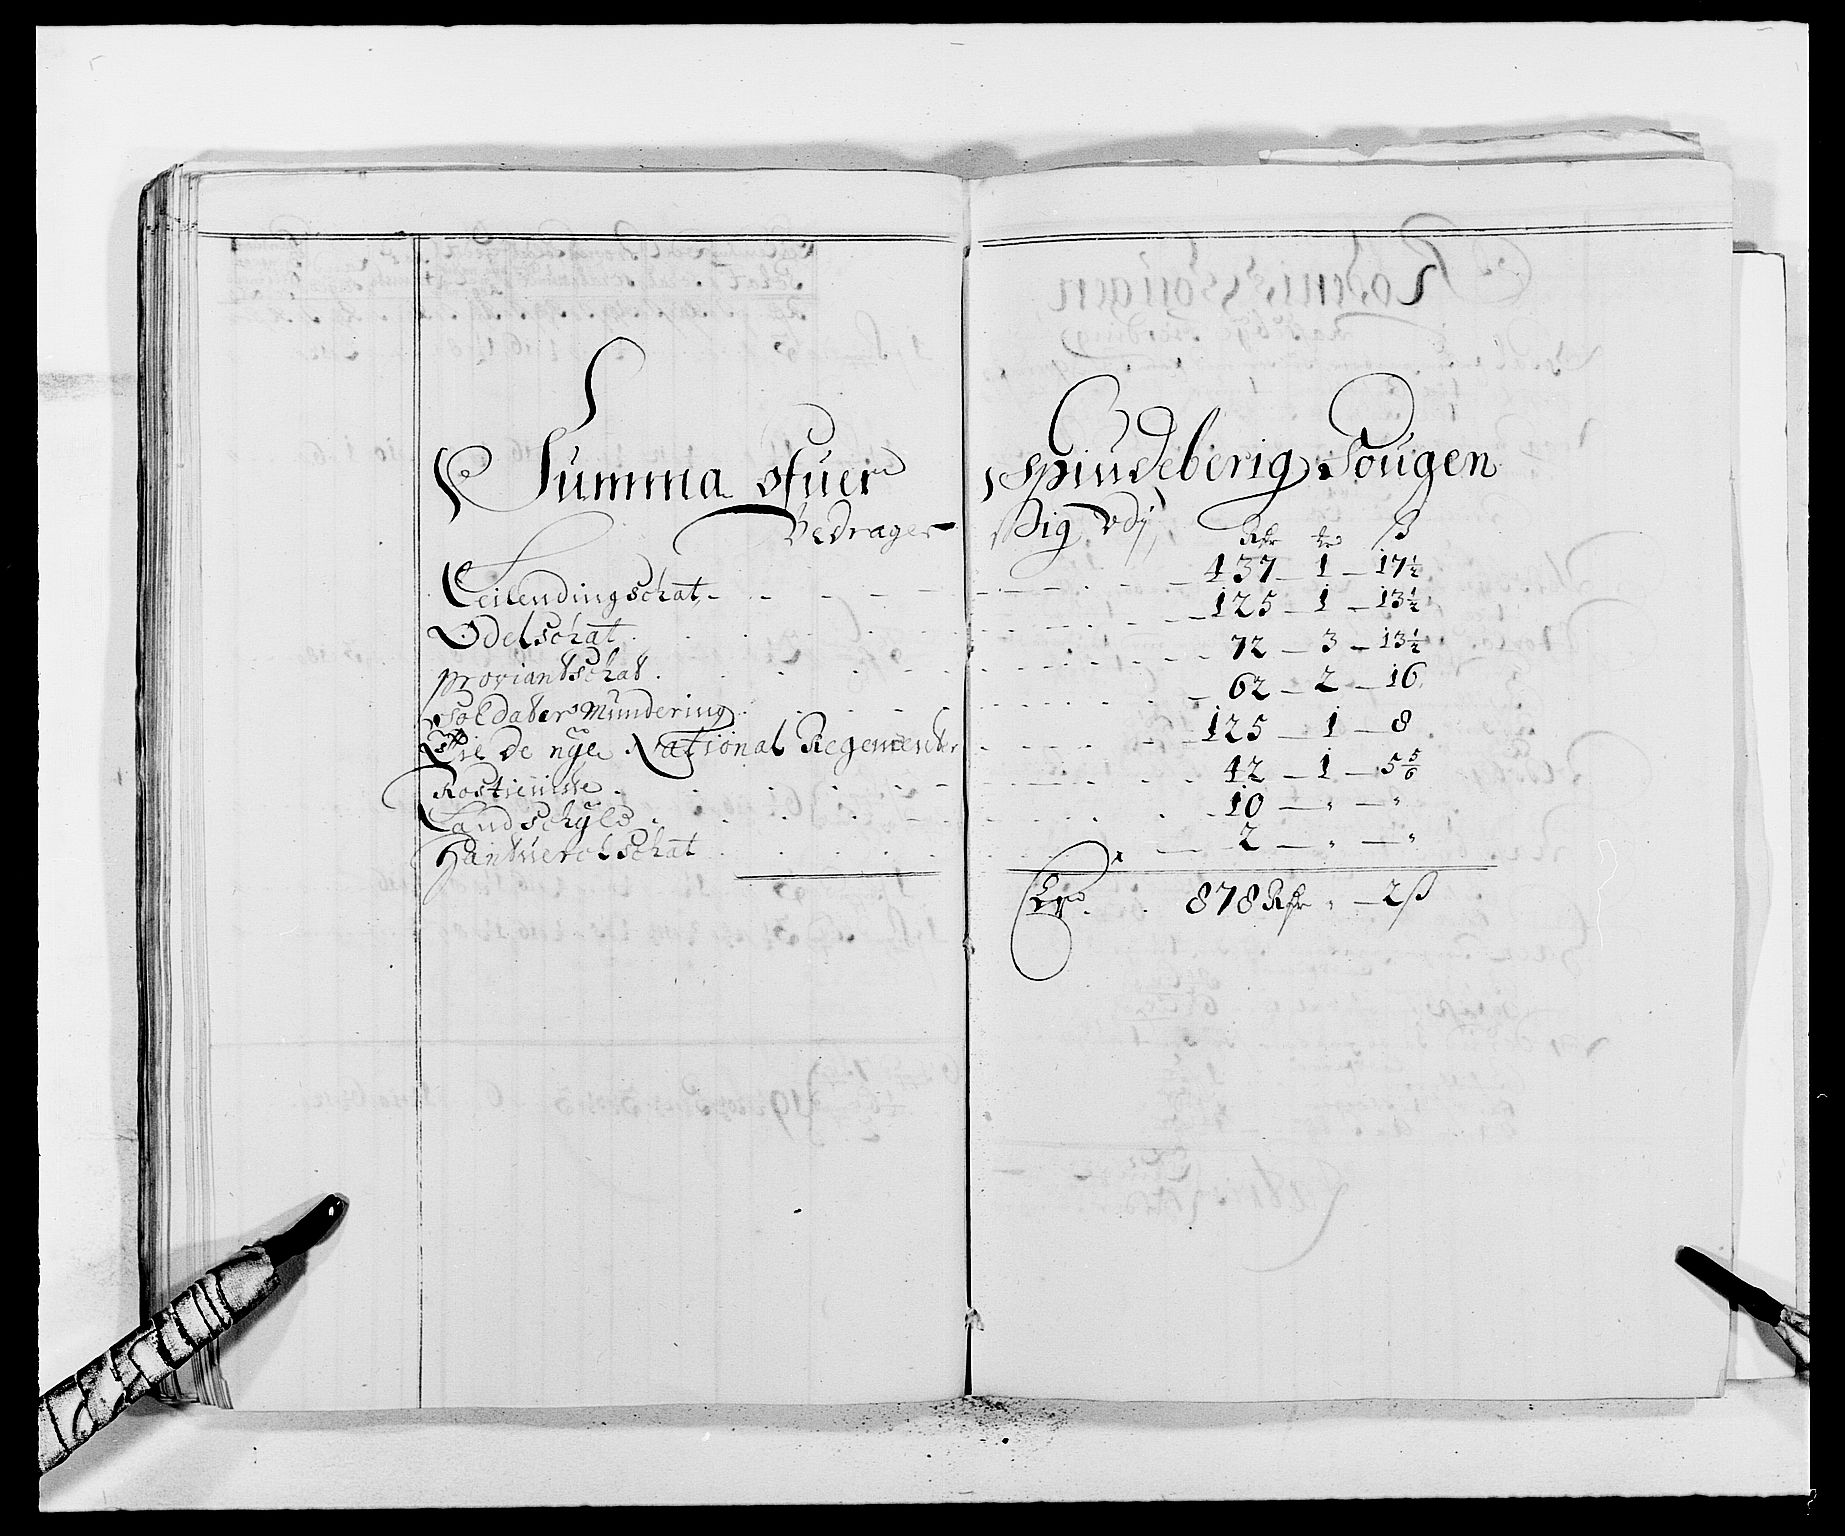 Summa ofuer Spindeberig Sougen
Bedrager Sig Vdj
Rdr ß
Leilendingschat 437 – 1 – 17½
Odelschat 125 – 1 – 13½
proviantschat 72 – 3 – 13½
Soldater Mundering 62 – 2 – 16
Til de nye National Regementer 125 – 1 – 8
Rostieniste 42 – 1 – 5 5/6
Landschyld 10 – „ – „
Hantuerchschat 2 – „ – „
878 Rdr „ – 2 ß